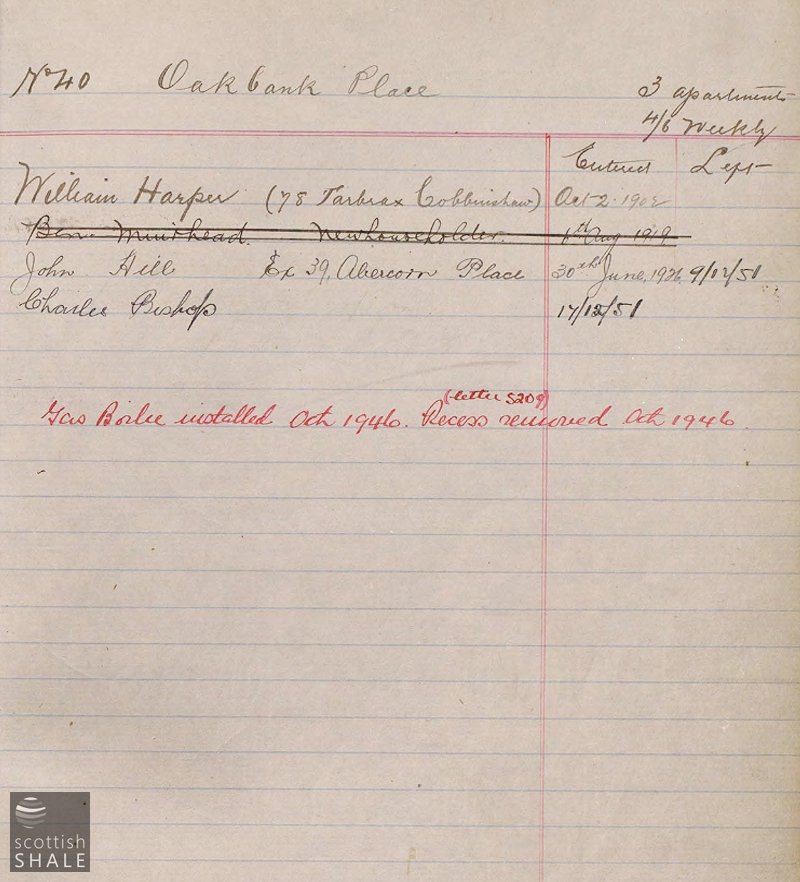 No 40 Oakbank Place
3 apartments
4/6 Weekly
Entered Left
William Harper (78 Tarbrax Cobbinshaw) Oct 2. 1902
Ben. Muirhead. Newhouseholder. Aug 1919
John Hill Ex 39, Abercorn Place 30th June, 1926 9/12/51
Charles Bishop 17/12/51
(letter 5209)
Gas Boiler installed Oct 1946. Recess removed Oct 1946.
scottish
SHALE